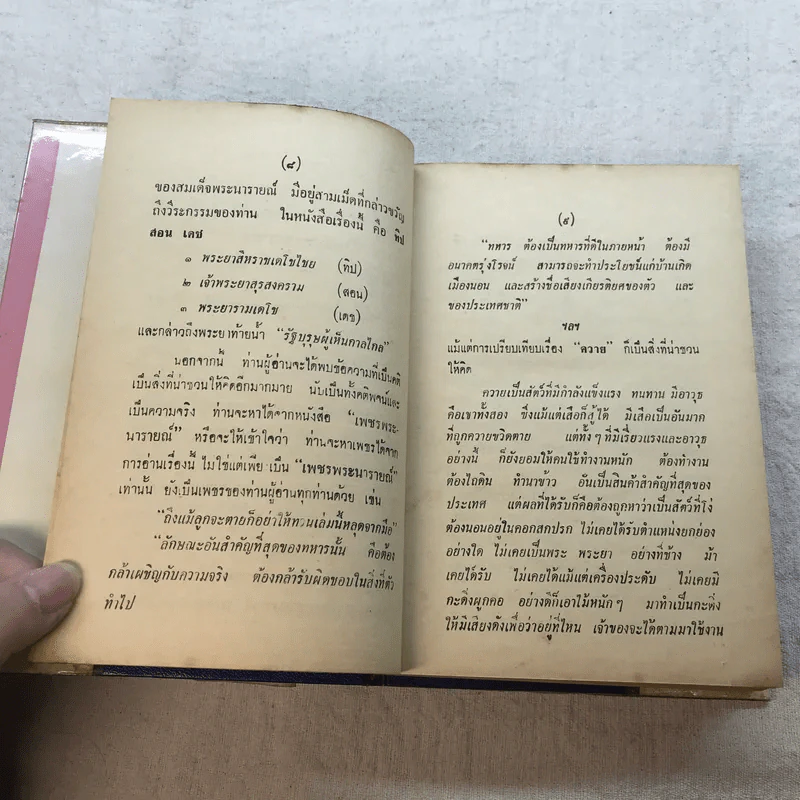 (๘)
ของสมเด็จพระนารายณ์ มีอยู่สามเม็ดที่กล่าวขวัญ
ถึงวีระกรรมของท่าน ในหนังสือเรื่องนี้ คือ ทิป
สอน เดช
๑ พระยาสีหราชเดโชไชย (ทิป)
๒ เจ้าพระยาสุรสงคราม (สอน)
๓ พระยารามเดโช (เดช)
และกล่าวถึงพระยาท้ายน้ำ "รัฐบุรุษผู้เห็นกาลไกล"
นอกจากนี้ ท่านผู้อ่านจะได้พบข้อความที่เป็นคติ
เป็นสิ่งที่น่าชวนให้คิดอีกมากมาย นับเป็นทั้งคติพจน์และ
เป็นความจริง ท่านจะหาได้จากหนังสือ "เพชรพระ-
นารายณ์" หรือจะให้เข้าใจว่า ท่านจะหาเพชรได้จาก
การอ่านเรื่องนี้ ไม่ใช่แต่เพียงเป็น "เพชรพระนารายณ์"
เท่านั้น ยังเป็นเพชรของท่านผู้อ่านทุกท่านด้วย เช่น
"ถึงแม้ลูกจะตายก็อย่าให้ทวนเล่มนี้หลุดจากมือ"
"ลักษณะอันสำคัญที่สุดของทหารนั้น คือต้อง
กล้าเผชิญกับความจริง ต้องกล้ารับผิดชอบในสิ่งที่ตัว
ทำไป
(๙)
"ทหาร ต้องเป็นทหารที่ดีในภายหน้า ต้องมี
อนาคตรุ่งโรจน์ สามารถจะทำประโยชน์แก่บ้านเกิด
เมืองนอน และสร้างชื่อเสียงเกียรติยศของตัว และ
ของประเทศชาติ"
ฯลฯ
แม้แต่การเปรียบเทียบเรื่อง "ควาย" ก็เป็นสิ่งที่น่าชวน
ให้คิด
ควายเป็นสัตว์ที่มีกำลังแข็งแรง ทนทาน มีอาวุธ
คือเขาทั้งสอง ซึ่งแม้แต่เสือก็สู้ได้ มีเสือเป็นอันมาก
ที่ถูกควายขวิดตาย แต่ทั้งๆ ที่มีเรี่ยวแรงและอาวุธ
อย่างนี้ ก็ยังยอมให้คนใช้ทำงานหนัก ต้องทำงาน
ต้องไถดิน ทำนาข้าว อันเป็นสินค้าสำคัญที่สุดของ
ประเทศ แต่ผลที่ได้รับก็คือต้องถูกหาว่าเป็นสัตว์ที่โง่
ต้องนอนอยู่ในคอกสกปรก ไม่เคยได้รับตำแหน่งยกย่อง
อย่างใด ไม่เคยเป็นพระ พระยา อย่างที่ช้าง ม้า
เคยได้รับ ไม่เคยได้แม้แต่เครื่องประดับ ไม่เคยมี
กะดิ่งผูกคอ อย่างดีก็เอาไม้หนักๆ มาทำเป็นกะดิ่ง
ให้มีเสียงดังเพื่อว่าอยู่ที่ไหน เจ้าของจะได้ตามมาใช้งาน